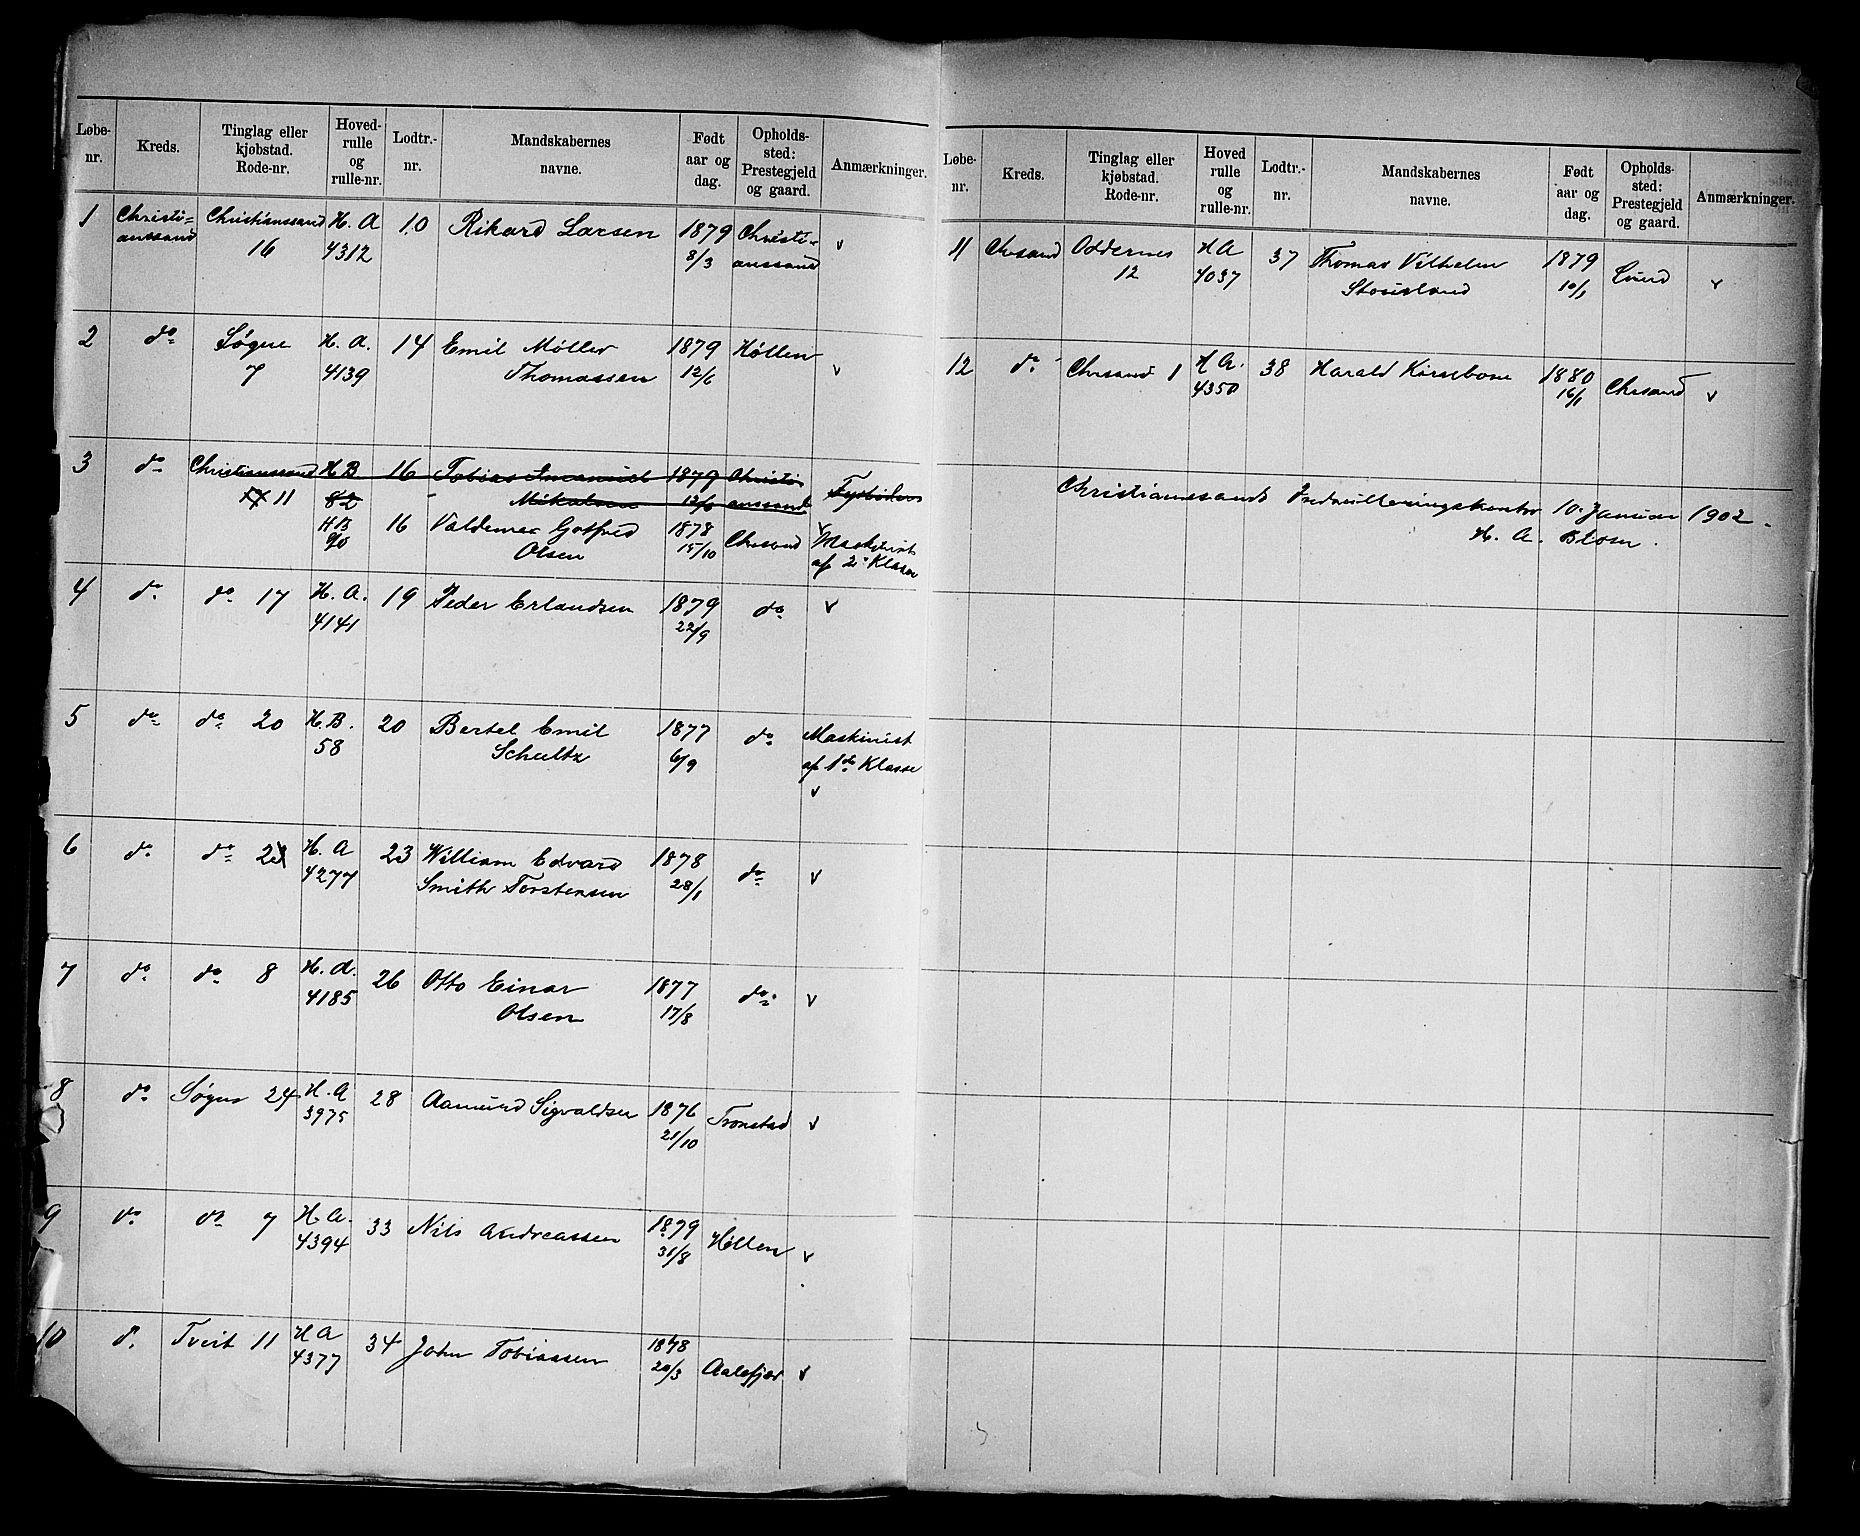 Løbe-nr. Kreds. Tinglag eller kjøbstad. Rode-nr. Hoved-rulle og rulle-nr. Lodtr.-nr. Mandskabernes navne. Født aar og dag. Opholds-sted: Prestegjeld og gaard. Anmærkninger.
1 Christi= Christianssand H. A 10 Rikard Larsen 1879 Christi=
anssand 16 4312 8/3 anssand v
2 do Søgne H. A. 14 Emil Møller 1879 Høllen
7 4139 Thomassen 12/6 v
3 do Christianssand H.B. 16 Tobias Emanuel 1879 Christi
11 82 Mikalsen 12/6 anssand Fyrbøder
H.B 16 Valdemar Gotfred 1878 Chrsand v Maskinist
90 Olsen 15/10 af 2. Klasse
4 do. do. 17 H. A. 19 Peder Erlandsen 1879 do v
4141 22/9
5 do do 20 H.B. 20 Bertel Emil 1877 do Maskinist
58 Schultz 6/9 af 1ste Klasse
v
6 do. do. H. A 23 William Edvard 1878 do v
4277 Smith Torstensen 28/1
7 do. do. 8 H. A. 26 Otto Einar 1877 do. v
4185 Olsen 17/8
8 do. Søgne 24 H. A 28 Aamund Sigvaldsen 1876 Tronstad v
3975 21/10
9 do. do. 7 H. A. 33 Nils Andreassen 1879 Høllen v
4394 31/8
10 do. Tveit 11 H A 34 John Tobiassen 1878 Aalefjær v
4377 20/3
Løbe-nr. Kreds. Tinglag eller kjøbstad. Rode-nr. Hoved rulle og rulle-nr. Lodtr.-nr. Mandskabernes navne. Født aar og dag. Opholds-sted: Prestegjeld og gaard. Anmærkninger.
11 Chrsand Oddernes H A 37 Thomas Vilhelm 1879 Lund v
12 4037 10/1
12 do Chrsand 1 H A. 38 Harald Kirsebom 1880 Chrsand v
4350 16/1
Christianssands Indrulleringskontor 10. Januar 1902.
H. A. Blom.